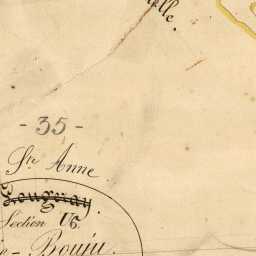 ille.
- 35 -
Ste Anne
Longuay.
Section
Bouju.